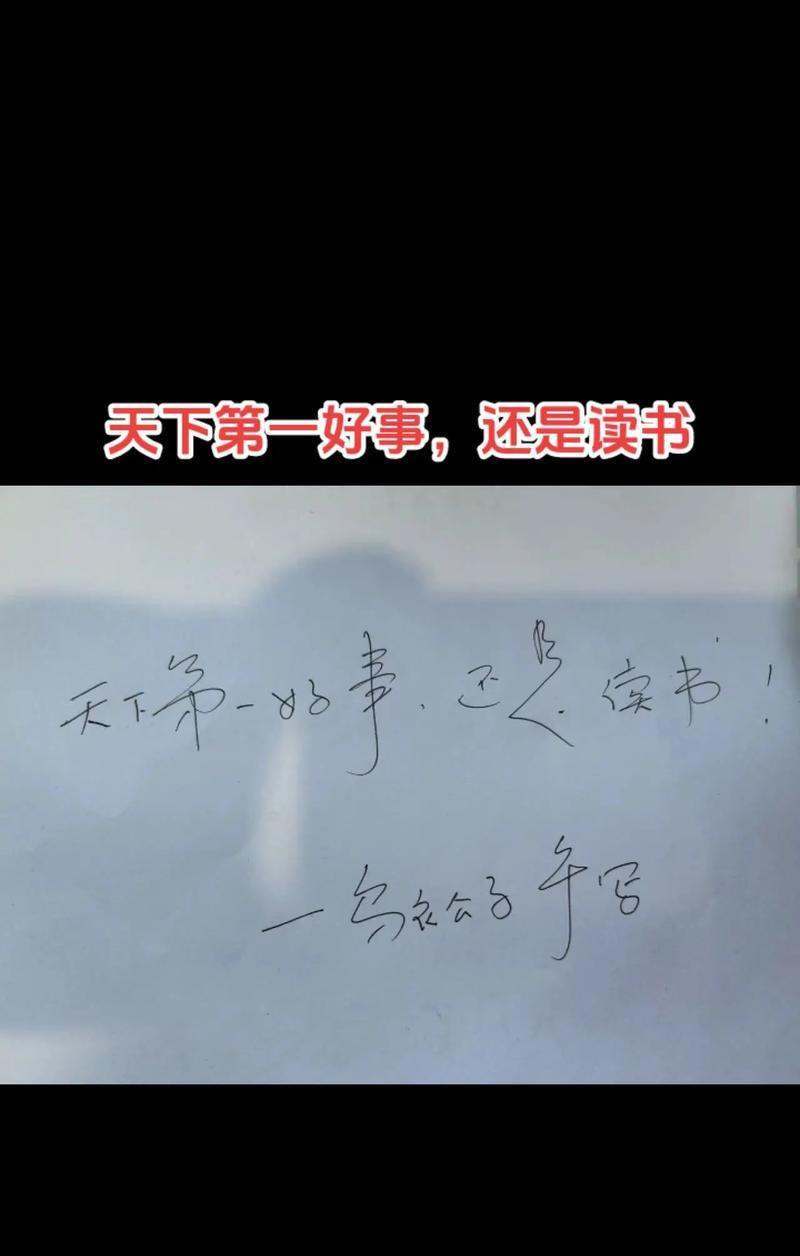 天下第一好事，还是读书
天下第一好事，还是读书！
一乌衣公子手写